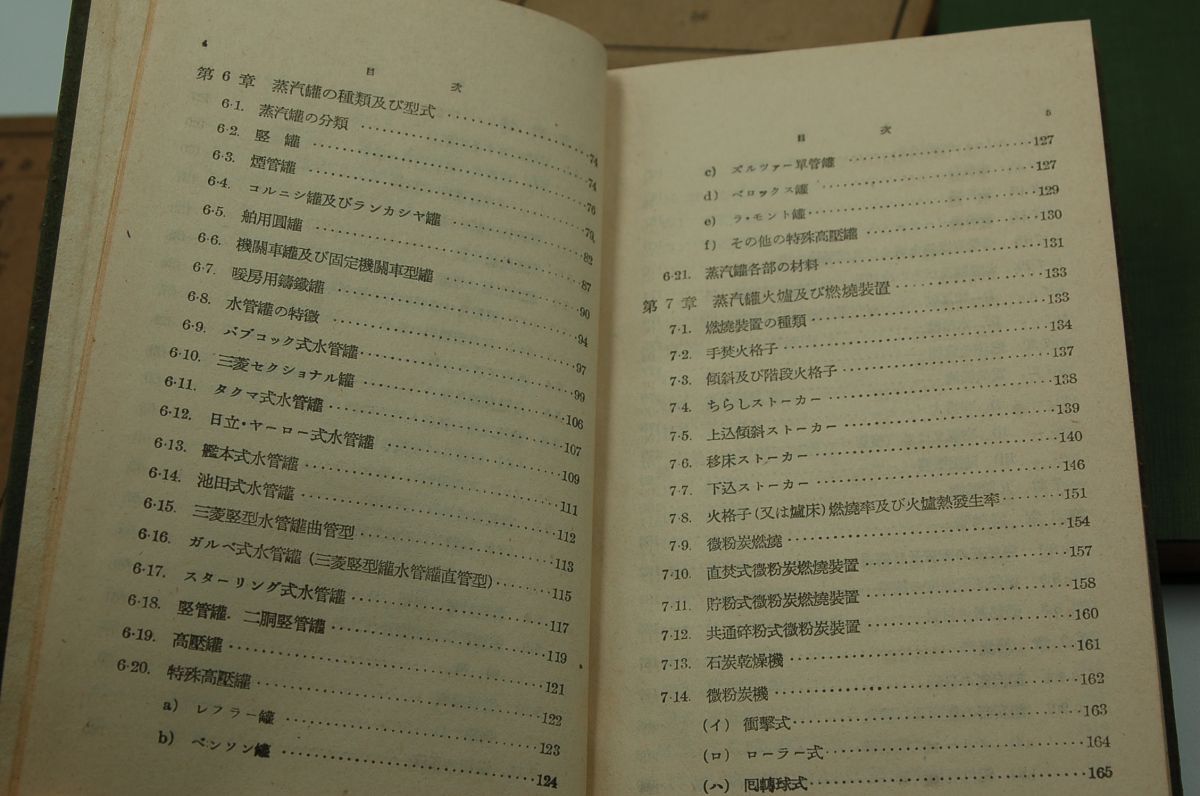 4
目 次
第6章 蒸汽罐の種類及び型式 ……………… 74
6·1. 蒸汽罐の分類 ……………… 74
6·2. 竪 罐 ……………… 76
6·3. 煙管罐 ……………… 79
6·4. コルニシ罐及びランカシヤ罐 ……………… 82
6·5. 舶用圓罐 ……………… 87
6·6. 機關車罐及び固定機關車型罐 ……………… 90
6·7. 暖房用鑄鐵罐 ……………… 94
6·8. 水管罐の特徴 ……………… 97
6·9. バブコック式水管罐 ……………… 99
6·10. 三菱セクショナル罐 ……………… 106
6·11. タクマ式水管罐 ……………… 107
6·12. 日立·ヤーロー式水管罐 ……………… 109
6·13. 艦本式水管罐 ……………… 111
6·14. 池田式水管罐 ……………… 112
6·15. 三菱竪型水管罐曲管型 ……………… 113
6·16. ガルベ式水管罐 (三菱竪型罐水管罐直管型) ……… 115
6·17. スターリング式水管罐 ……………… 117
6·18. 竪管罐．二胴竪管罐 ……………… 119
6·19. 高壓罐 ……………… 121
6·20. 特殊高壓罐 ……………… 122
a) レフラー罐 ……………… 123
b) ベンソン罐 ……………… 124
目 次
5
c) ズルツァー單管罐 ……………… 127
d) ベロックス罐 ……………… 127
e) ラ·モント罐 ……………… 129
f) その他の特殊高壓罐 ……………… 130
6·21. 蒸汽罐各部の材料 ……………… 131
第7章 蒸汽罐火爐及び燃燒裝置 ……………… 133
7·1. 燃燒裝置の種類 ……………… 133
7·2. 手焚火格子 ……………… 134
7·3. 傾斜及び階段火格子 ……………… 137
7·4. ちらしストーカー ……………… 138
7·5. 上込傾斜ストーカー ……………… 139
7·6. 移床ストーカー ……………… 140
7·7. 下込ストーカー ……………… 146
7·8. 火格子 (又は爐床) 燃燒率及び火爐熱發生率 ……… 151
7·9. 微粉炭燃燒 ……………… 154
7·10. 直焚式微粉炭燃燒裝置 ……………… 157
7·11. 貯粉式微粉炭燃燒裝置 ……………… 158
7·12. 共通碎粉式微粉炭裝置 ……………… 160
7·13. 石炭乾燥機 ……………… 161
7·14. 微粉炭機 ……………… 162
(イ) 衝擊式 ……………… 163
(ロ) ローラー式 ……………… 164
(ハ) 囘轉球式 ……………… 165